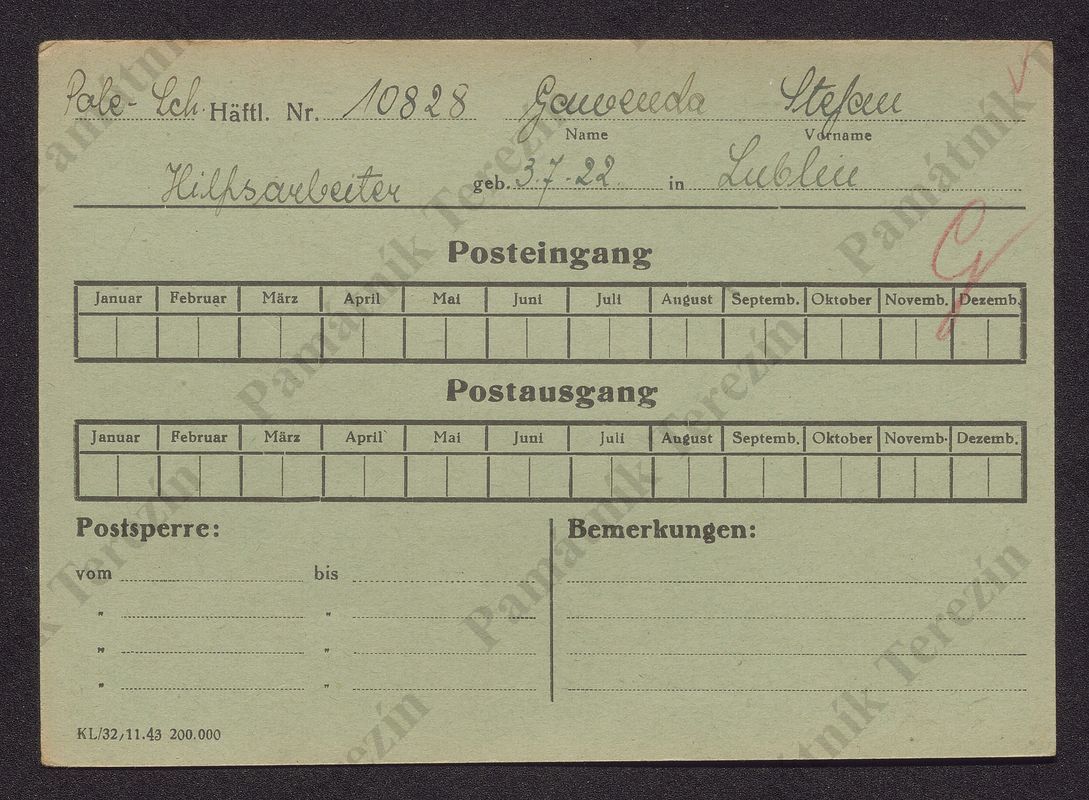 Pole - Sch. Häftl. Nr. 10828 Gawenda Stefan
Name Vorname
Hilfsarbeiter geb. 3.7.22. in Lublin
G
Posteingang
Januar Februar März April Mai Juni Juli August Septemb. Oktober Novemb. Dezemb.
Postausgang
Januar Februar März April Mai Juni Juli August Septemb. Oktober Novemb. Dezemb.
Postsperre: Bemerkungen:
vom bis
" "
" "
" "
KL/32/11.43 200.000
Památník Terezín